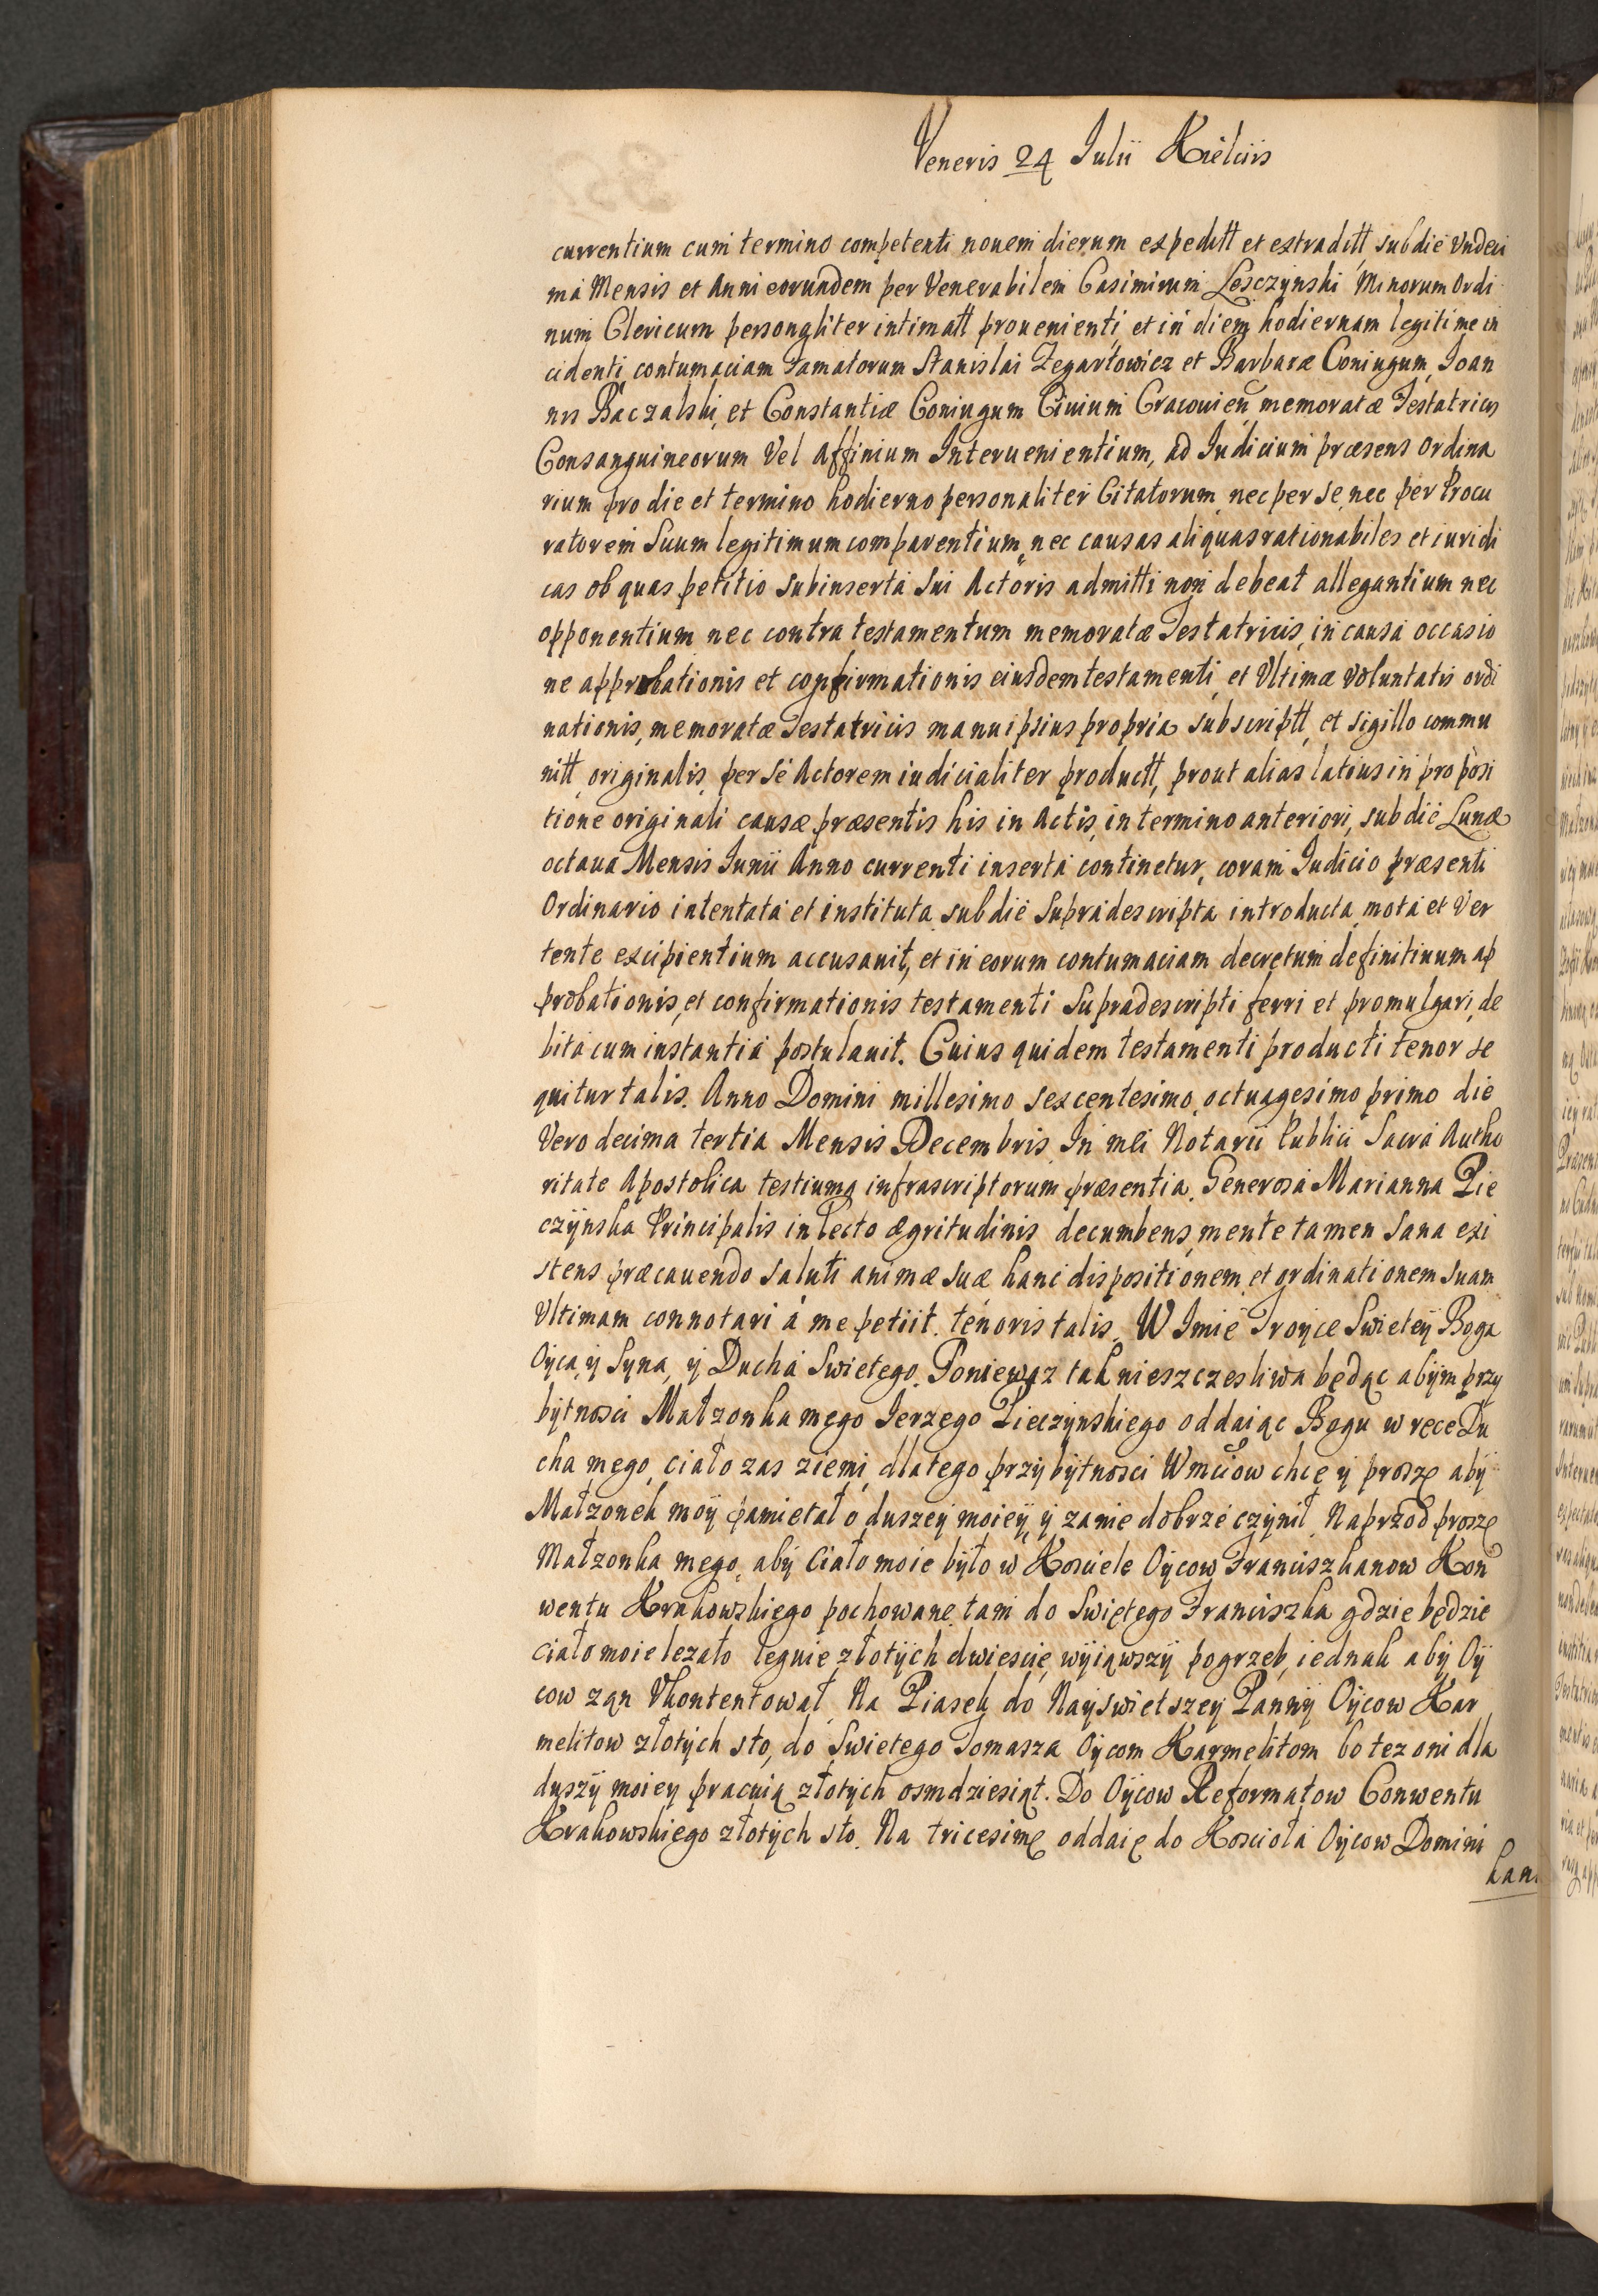 Veneris 24 Julii Kielciis
currentium cum termino competenti nouem dierum expeditt et extraditt, sub die Vndeci
ma Mensis et Anni eorundem per Venerabilem Casimirum Lesczynski Minorum Ordi
num Clericum personaliter intimatt prouenienti, et in diem hodiernam legitime in
cidenti, contumaciam Famatorum Stanislai Zegartowicz et Barbaræ Coniugum, Joan
nis Baczalski, et Constantiæ Coniugum Ciuium Cracouien memoratæ Testatricis
Consanguineorum Vel Affinium Interuenientium, ad Iudicium præsens Ordina
rium pro die et termino hodierno personaliter Citatorum, nec per se, nec per Procu
ratorem Suum legitimum comparentium, nec causas aliquas rationabiles et iuridi
cas ob quas petitio subinserta sui Actoris admitti non debeat allegantium nec
opponentium, nec contra testamentum memoratæ Testatricis, in causa occasio
ne approbationis et confirmationis eiusdem testamenti, et Vltimæ Voluntatis ordi
nationis, memoratæ Testatricis manu ipsius propria subscriptt, et sigillo commu
nitt, originalis, per se Actorem iudicialiter productt, prout alias latius in proposi
tione originali causæ præsentis his in Actis, in termino anteriori, sub die Lunæ
octaua Mensis Junii Anno currenti inserta continetur, coram Iudicio præsenti
Ordinario intentata et instituta, sub die Supradescripta introducta, mota et Ver
tente excipientium accusauit, et in eorum contumaciam decretum definitiuum ap
probationis, et confirmationis testamenti Supradescripti ferri et promulgari, de
bita cum instantia postulauit. Cuius quidem testamenti producti tenor se
quitur talis. Anno Domini millesimo sexcentesimo, octuagesimo primo die
Vero decima tertia Mensis Decembris. In mei Notarii Publici Sacra Autho
ritate Apostolica testiumq infrascriptorum præsentia. Generosa Marianna Pie
czÿnska Principalis in lecto ægritudinis decumbens, mente tamen sana exi
stens præcauendo saluti animæ suæ hanc dispositionem et ordinationem suam
Vltimam connotari a me petiit. tenoris talis. W Imie Troyce Swietey Boga
Oÿca, ÿ Syna, ÿ Ducha Swietego. Poniewaz tak nieszczesliwa będąc abÿm przy
bÿtnosci Małzonka mego Jerzego Pieczynskiego oddaiąc Bogu w ręce Du
cha mego, ciało zas ziemi, dlatego przÿ bÿtnosci Wmciow chcę ÿ proszę abÿ
Małzonek moÿ pamietał o duszeÿ moieÿ, ÿ zanie dobrze czÿnił. Naprzod proszę
Małzonka mego, abÿ Ciało moie bÿło w Kosciele Oÿcow Franciszkanow Kon
wentu Krakowskiego pochowane, tam do Swiętego Franciszka gdzie będzie
ciało moie lezało leguie złotÿch dwiescie, wÿiąwszÿ pogrzeb, iednak abÿ Oÿ
cow zan Vkontentował. Na Piasek do Naÿswietszeÿ Pannÿ Oÿcow Kar
melitow złotÿch sto, do Swietego Tomasza Oÿcom Karmelitom bo tez oni dla
duszÿ moiey pracuią złotÿch osmdziesiąt. Do Oÿcow Reformatow Conwentu
Krakowskiego złotÿch sto. Na tricesimę oddaię do Kosciola Oÿcow Domini